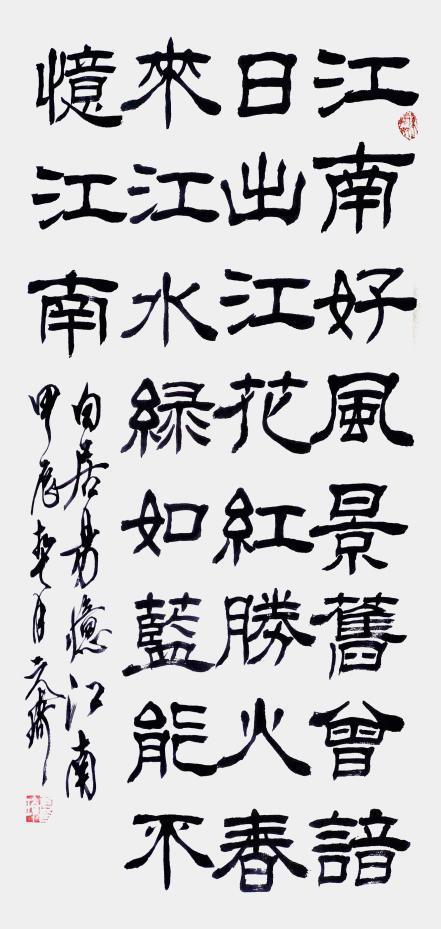 江南好風景舊曾諳
日出江花紅勝火春
來江水緑如藍能不
憶江南
白居易憶江南
甲辰